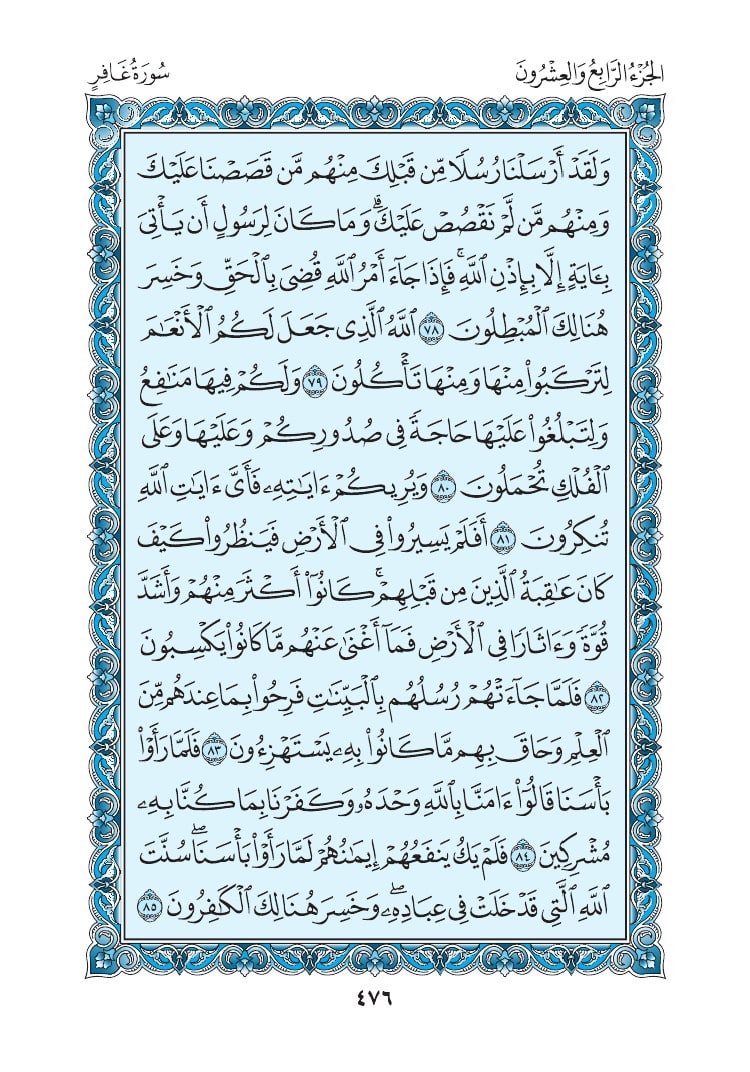 الجُزْءُ الرَّابِعُ وَالعِشْرُونَ
سُورَةُ غَافِرٍ
وَلَقَدۡ أَرۡسَلۡنَا رُسُلٗا مِّن قَبۡلِكَ مِنۡهُم مَّن قَصَصۡنَا عَلَيۡكَ
وَمِنۡهُم مَّن لَّمۡ نَقۡصُصۡ عَلَيۡكَۗ وَمَا كَانَ لِرَسُولٍ أَن يَأۡتِيَ
بِـَٔايَةٍ إِلَّا بِإِذۡنِ ٱللَّهِۚ فَإِذَا جَآءَ أَمۡرُ ٱللَّهِ قُضِيَ بِٱلۡحَقِّ وَخَسِرَ
هُنَالِكَ ٱلۡمُبۡطِلُونَ ٧٨ ٱللَّهُ ٱلَّذِي جَعَلَ لَكُمُ ٱلۡأَنۡعَٰمَ
لِتَرۡكَبُواْ مِنۡهَا وَمِنۡهَا تَأۡكُلُونَ ٧٩ وَلَكُمۡ فِيهَا مَنَٰفِعُ
وَلِتَبۡلُغُواْ عَلَيۡهَا حَاجَةٗ فِي صُدُورِكُمۡ وَعَلَيۡهَا وَعَلَى
ٱلۡفُلۡكِ تُحۡمَلُونَ ٨٠ وَيُرِيكُمۡ ءَايَٰتِهِۦ فَأَيَّ ءَايَٰتِ ٱللَّهِ
تُنكِرُونَ ٨١ أَفَلَمۡ يَسِيرُواْ فِي ٱلۡأَرۡضِ فَيَنظُرُواْ كَيۡفَ
كَانَ عَٰقِبَةُ ٱلَّذِينَ مِن قَبۡلِهِمۡۚ كَانُوٓاْ أَكۡثَرَ مِنۡهُمۡ وَأَشَدَّ
قُوَّةٗ وَءَاثَارٗا فِي ٱلۡأَرۡضِ فَمَآ أَغۡنَىٰ عَنۡهُم مَّا كَانُواْ يَكۡسِبُونَ
٨٢ فَلَمَّا جَآءَتۡهُمۡ رُسُلُهُم بِٱلۡبَيِّنَٰتِ فَرِحُواْ بِمَا عِندَهُم مِّنَ
ٱلۡعِلۡمِ وَحَاقَ بِهِم مَّا كَانُواْ بِهِۦ يَسۡتَهۡزِءُونَ ٨٣ فَلَمَّا رَأَوۡاْ
بَأۡسَنَا قَالُوٓاْ ءَامَنَّا بِٱللَّهِ وَحۡدَهُۥ وَكَفَرۡنَا بِمَا كُنَّا بِهِۦ
مُشۡرِكِينَ ٨٤ فَلَمۡ يَكُ يَنفَعُهُمۡ إِيمَٰنُهُمۡ لَمَّا رَأَوۡاْ بَأۡسَنَاۖ سُنَّتَ
ٱللَّهِ ٱلَّتِي قَدۡ خَلَتۡ فِي عِبَادِهِۦۖ وَخَسِرَ هُنَالِكَ ٱلۡكَٰفِرُونَ ٨٥
٤٧٦